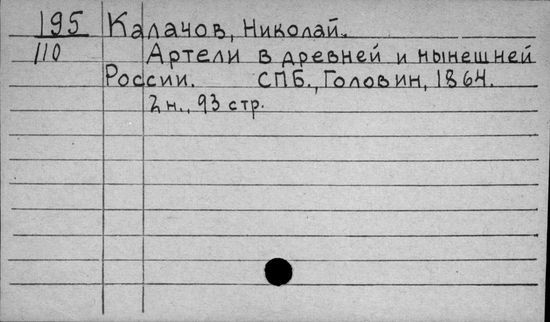 195 Калачов, Николай.
110 Артели в древней и нынешней
России. СПБ., Головин, 1864.
2 н., 93 стр.